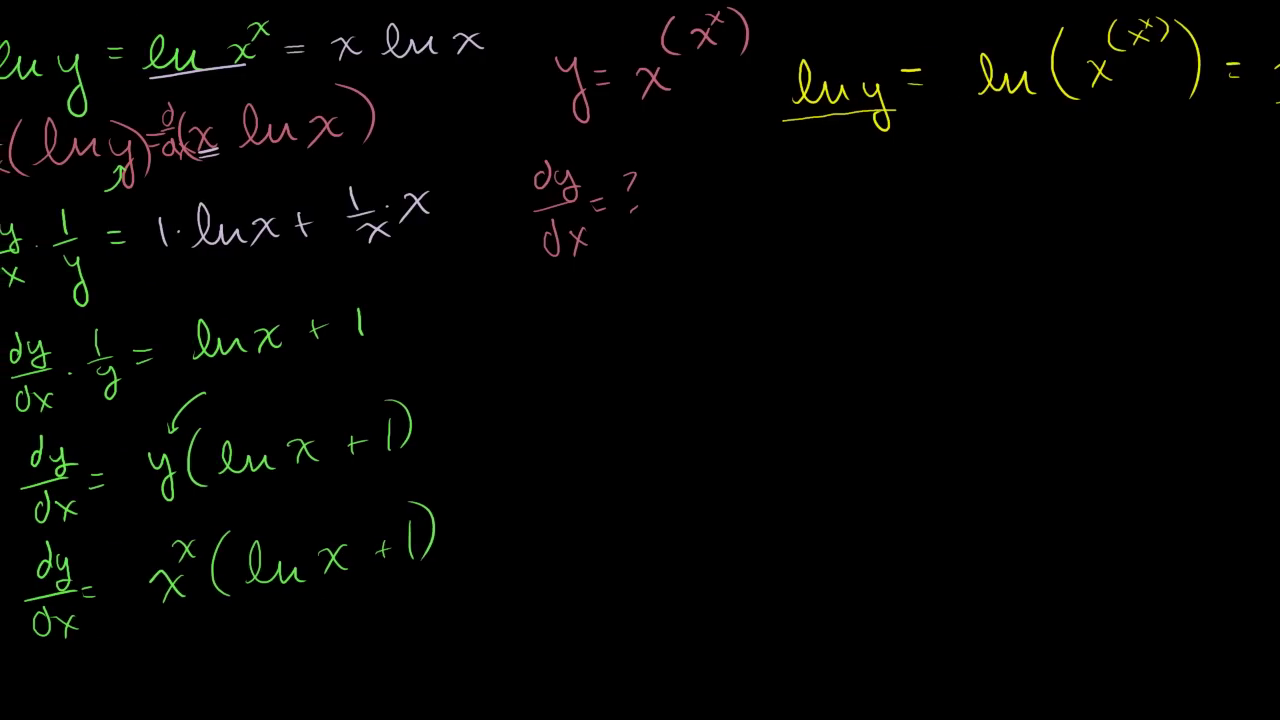 ln y = ln x^x = x ln x
(ln y) = d/dx (x ln x)
y/x · 1/y = 1 · ln x + 1/x · x
dy/dx · 1/y = ln x + 1
dy/dx = y(ln x + 1)
dy/dx = x^x (ln x + 1)
y = x^(x^x)
dy/dx = ?
ln y = ln(x^(x^x)) =